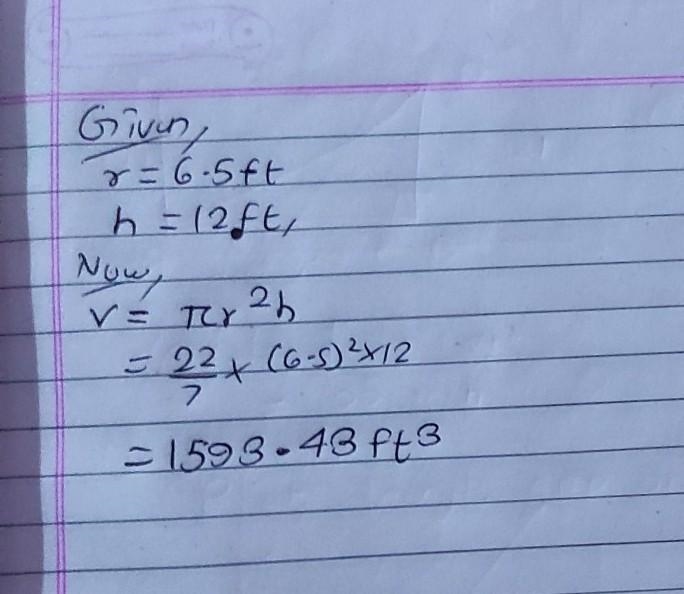 Given,
r = 6.5ft
h = 12ft,
Now,
V = πr²h
= 22/7 × (6.5)²×12
= 1593.43 ft3